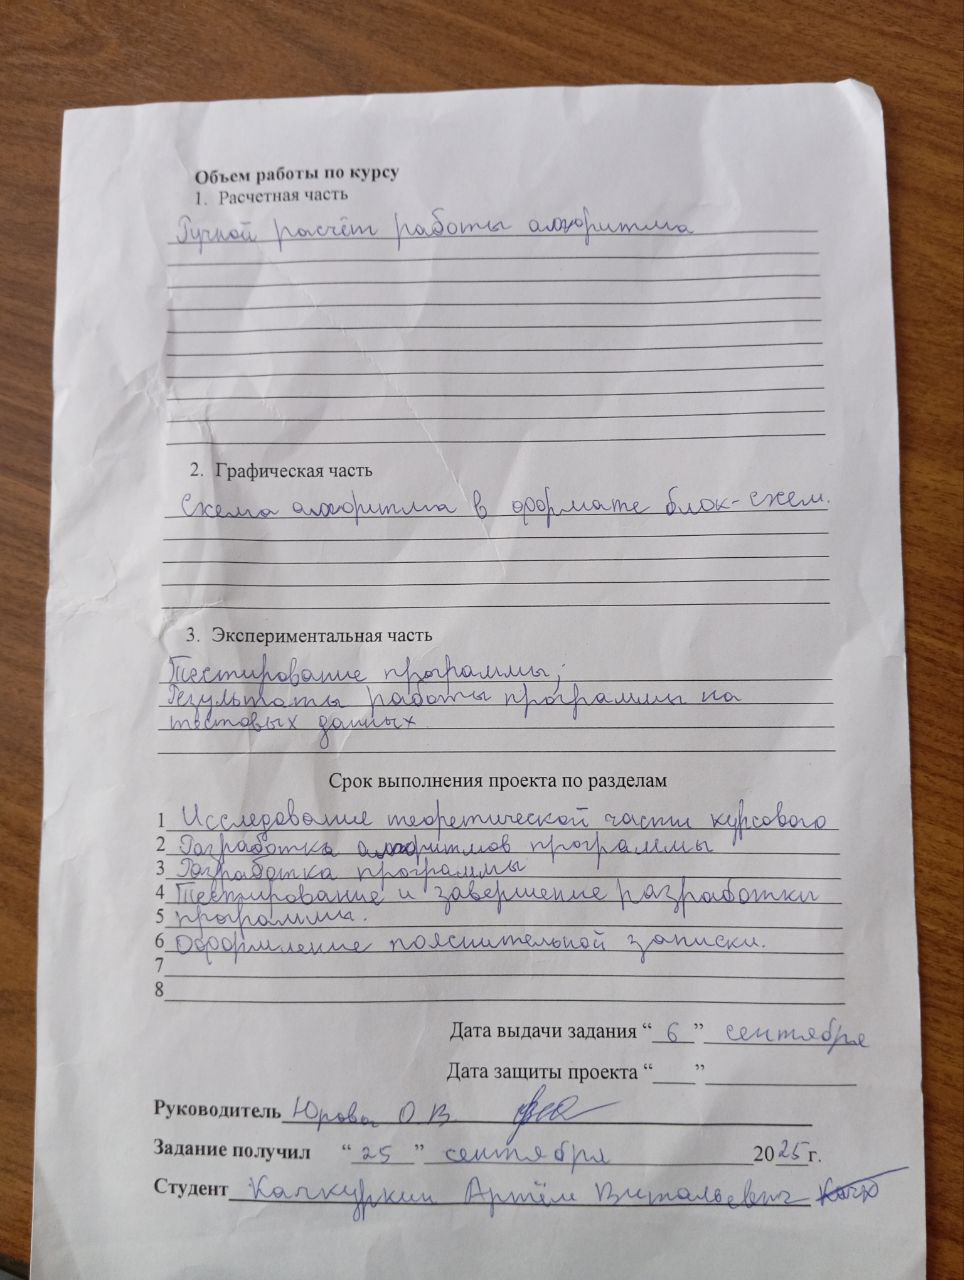 Объем работы по курсу
1. Расчетная часть
Ручной расчёт работы алгоритма
2. Графическая часть
Схема алгоритма в формате блок-схем.
3. Экспериментальная часть
Тестирование программы;
Результаты работы программы на
тестовых данных
Срок выполнения проекта по разделам
1 Исследование теоретической части курсового
2 Разработка алгоритмов программы
3 Разработка программы
4 Тестирование и завершение разработки
5 программы.
6 Оформление пояснительной записки.
7
8
Дата выдачи задания “ 6 ” сентября
Дата защиты проекта “ ”
Руководитель Юрова О.В.
Задание получил “ 25 ” сентября 2025 г.
Студент Качкуркин Артём Витальевич